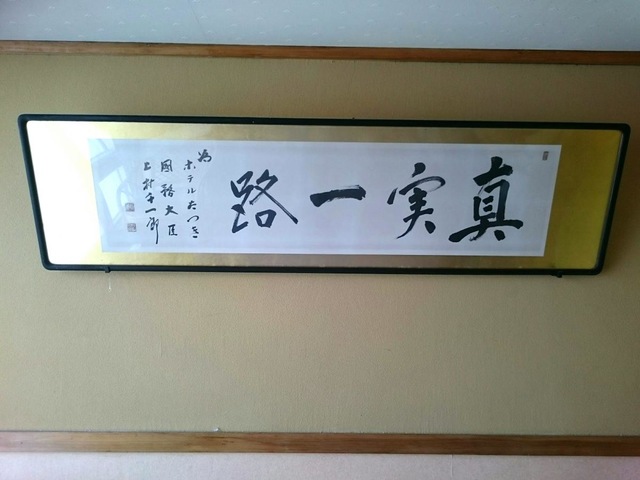 真実一路
為 ホテルたつき
國務大臣
上村千一郎